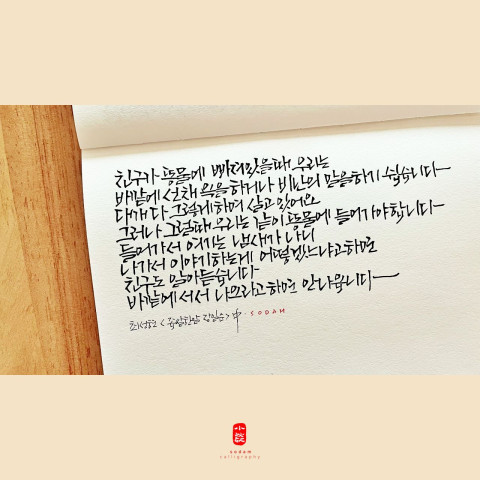 친구가 똥물에 빠져있을때, 우리는
바깥에 선채 욕을 하거나 비난의 말을하기 쉽습니다
다개 다 그렇게하며 살고 있어요
그러나 그럴때, 우리는 같이 똥물에 들어가야합니다
들어가서 여기는 냄새가 나니
나가서 이야기하는게 어떻겠느냐고하면
친구도 알아듣습니다
바깥에 서서 나오라고하면 안나옵니다
中 · SODAM
sodam
calligraphy